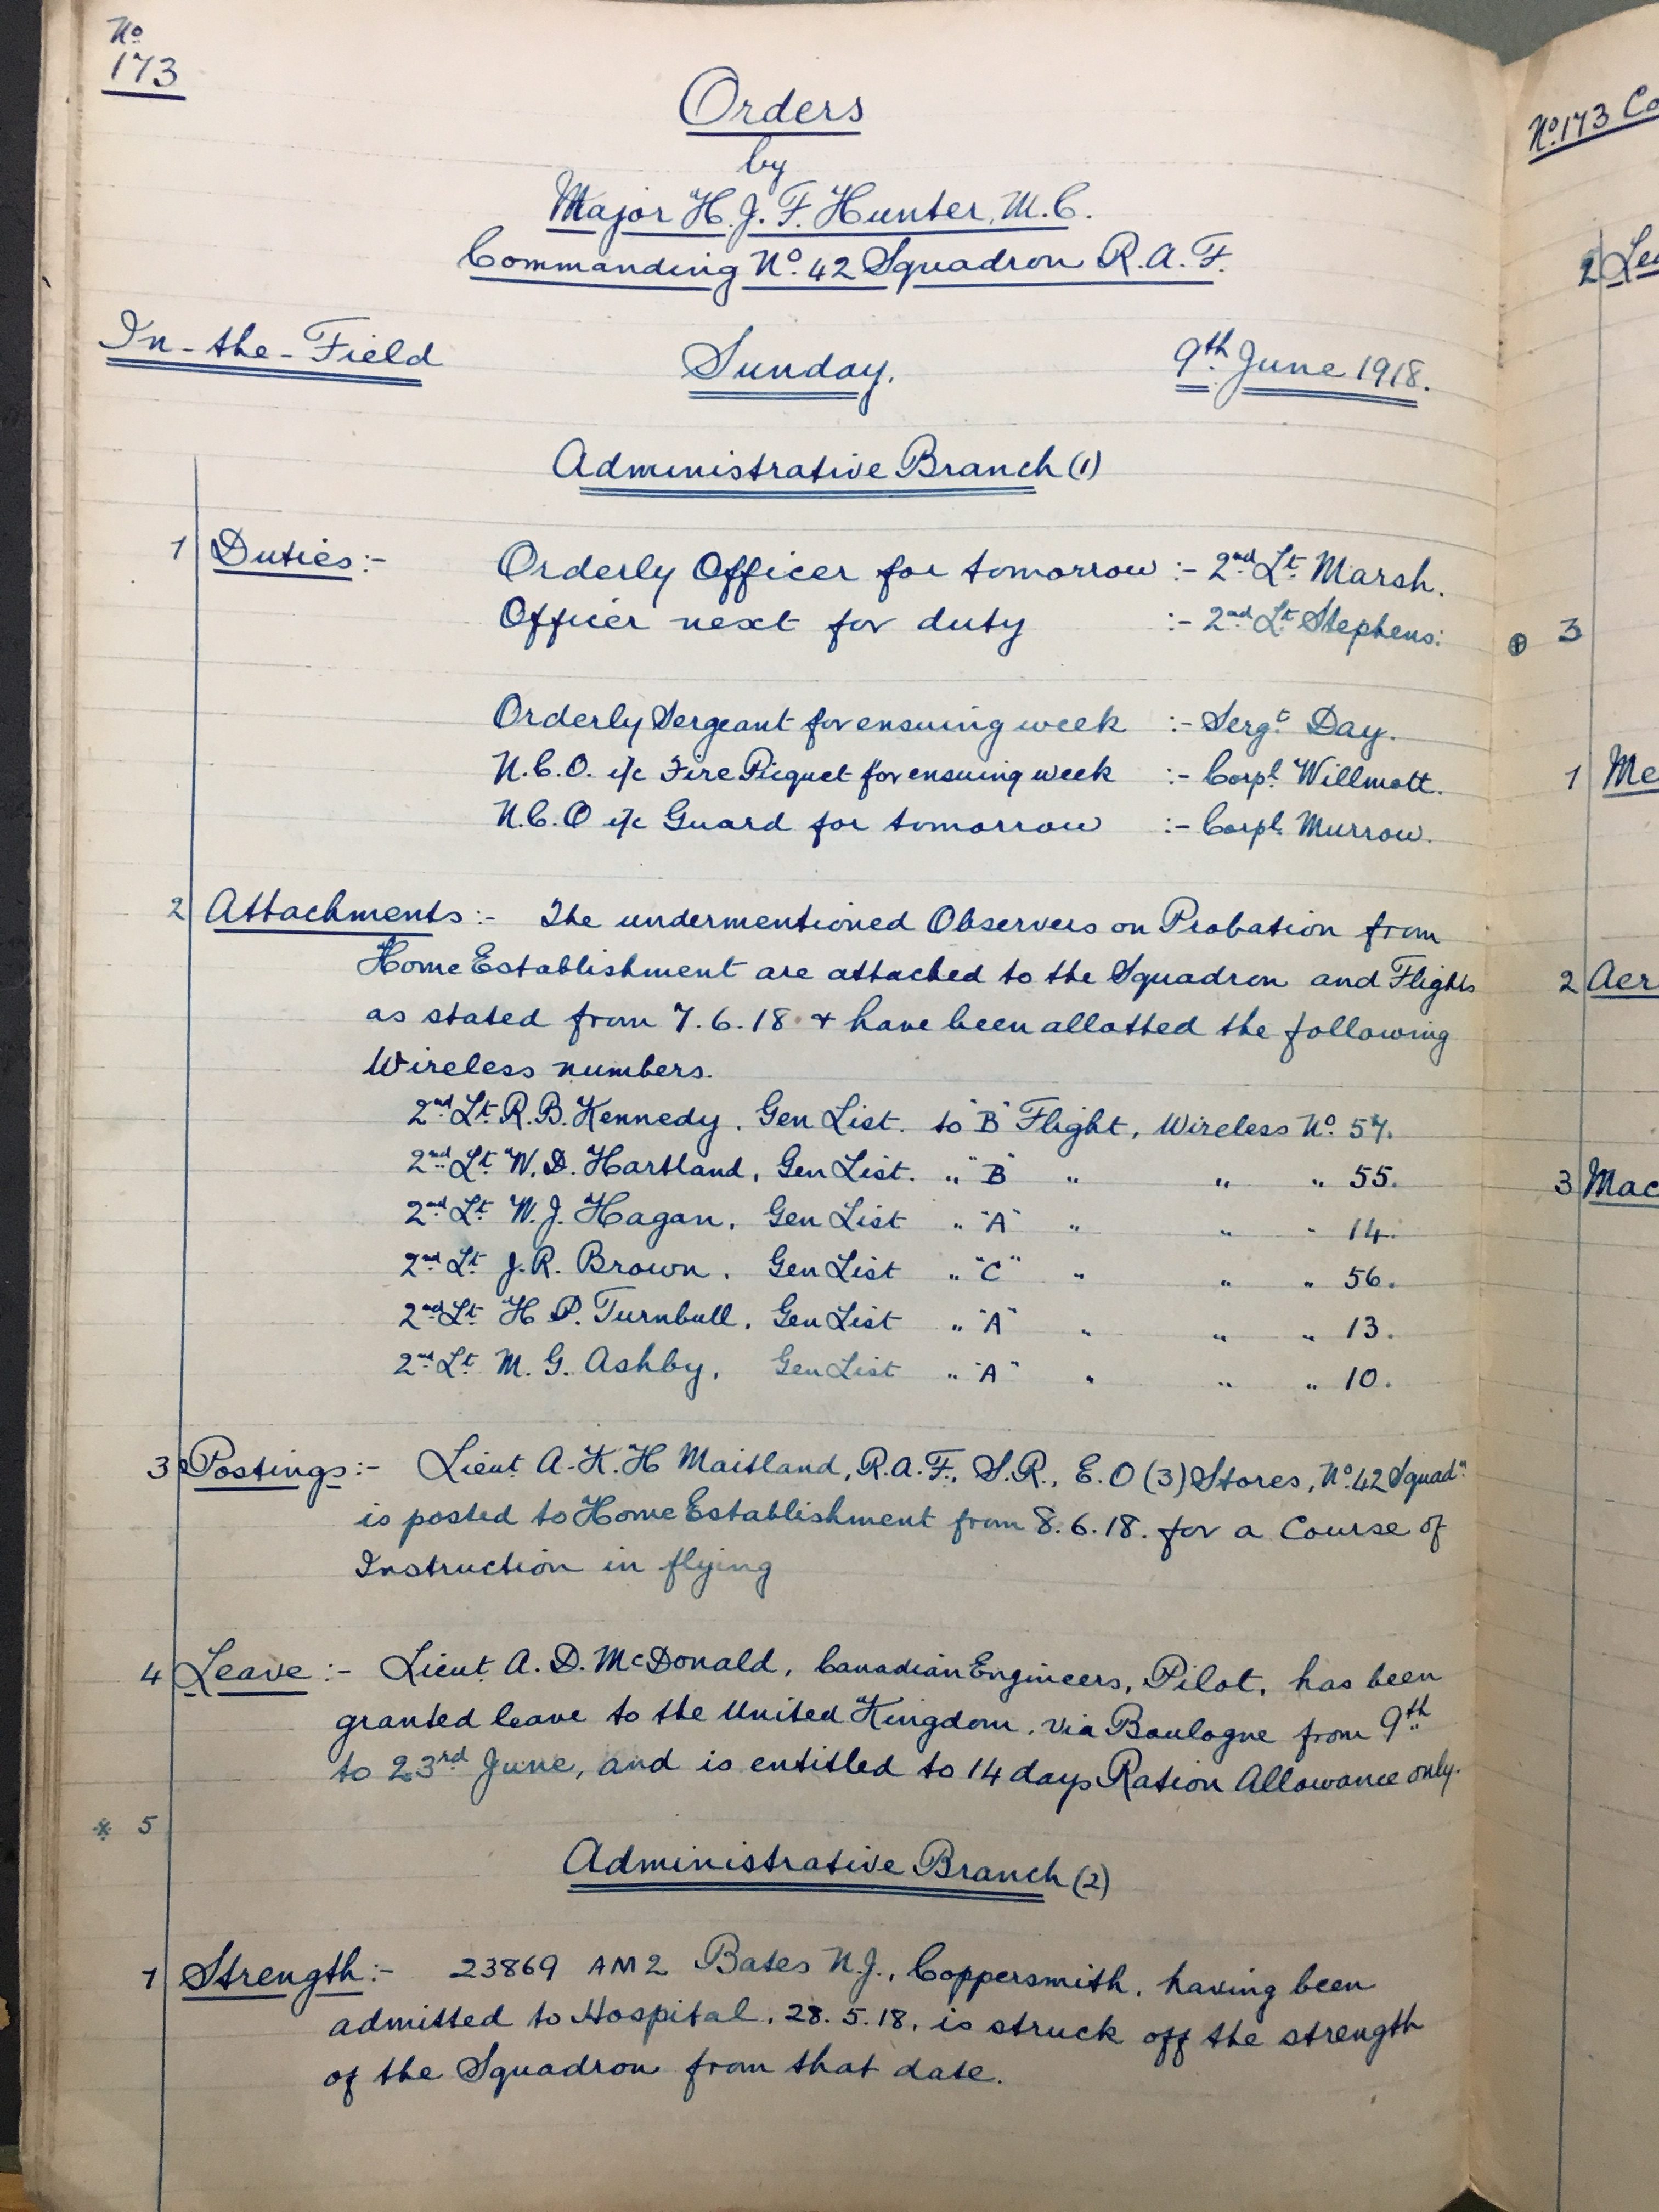 No
173
Orders
by
Major H. J. F. Hunter, M.C.
Commanding No. 42 Squadron R.A.F.
In-the-Field Sunday. 9th June 1918.
Administrative Branch (1)
1 Duties:- Orderly Officer for tomorrow :- 2nd Lt. Marsh.
Officer next for duty :- 2nd Lt. Stephens.
Orderly Sergeant for ensuing week :- Sergt. Day.
N.C.O. i/c Fire Picquet for ensuing week :- Corpl. Willmott.
N.C.O i/c Guard for tomorrow :- Corpl. Murrow.
2 Attachments:- The undermentioned Observers on Probation from
Home Establishment are attached to the Squadron and Flights
as stated from 7.6.18. + have been allotted the following
Wireless numbers.
2nd Lt. R.B. Kennedy, Gen List. to "B" Flight, Wireless No. 57.
2nd Lt. W.D. Hartland, Gen List. " "B" " " " 55.
2nd Lt. W.J. Hagan, Gen List " "A" " " " 14.
2nd Lt. J.R. Brown, Gen List " "C" " " " 56.
2nd Lt. H P. Turnbull, Gen List " "A" " " " 13.
2nd Lt. M. G. Ashby, Gen List " "A" " " " 10.
3 Postings:- Lieut. A. K. H Maitland, R.A.F., S.R., E.O (3) Stores, No. 42 Squadn.
is posted to Home Establishment from 8.6.18. for a Course of
Instruction in flying
4 Leave:- Lieut. A. D. McDonald, Canadian Engineers, Pilot, has been
granted leave to the United Kingdom, via Boulogne from 9th
to 23rd June, and is entitled to 14 days Ration Allowance only.
* 5
Administrative Branch (2)
1 Strength:- 23869 AM2 Bates N.J., Coppersmith, having been
admitted to Hospital, 28.5.18, is struck off the strength
of the Squadron from that date.
No. 173 Co
2
3
1 Me
2 Aer
3 Mac